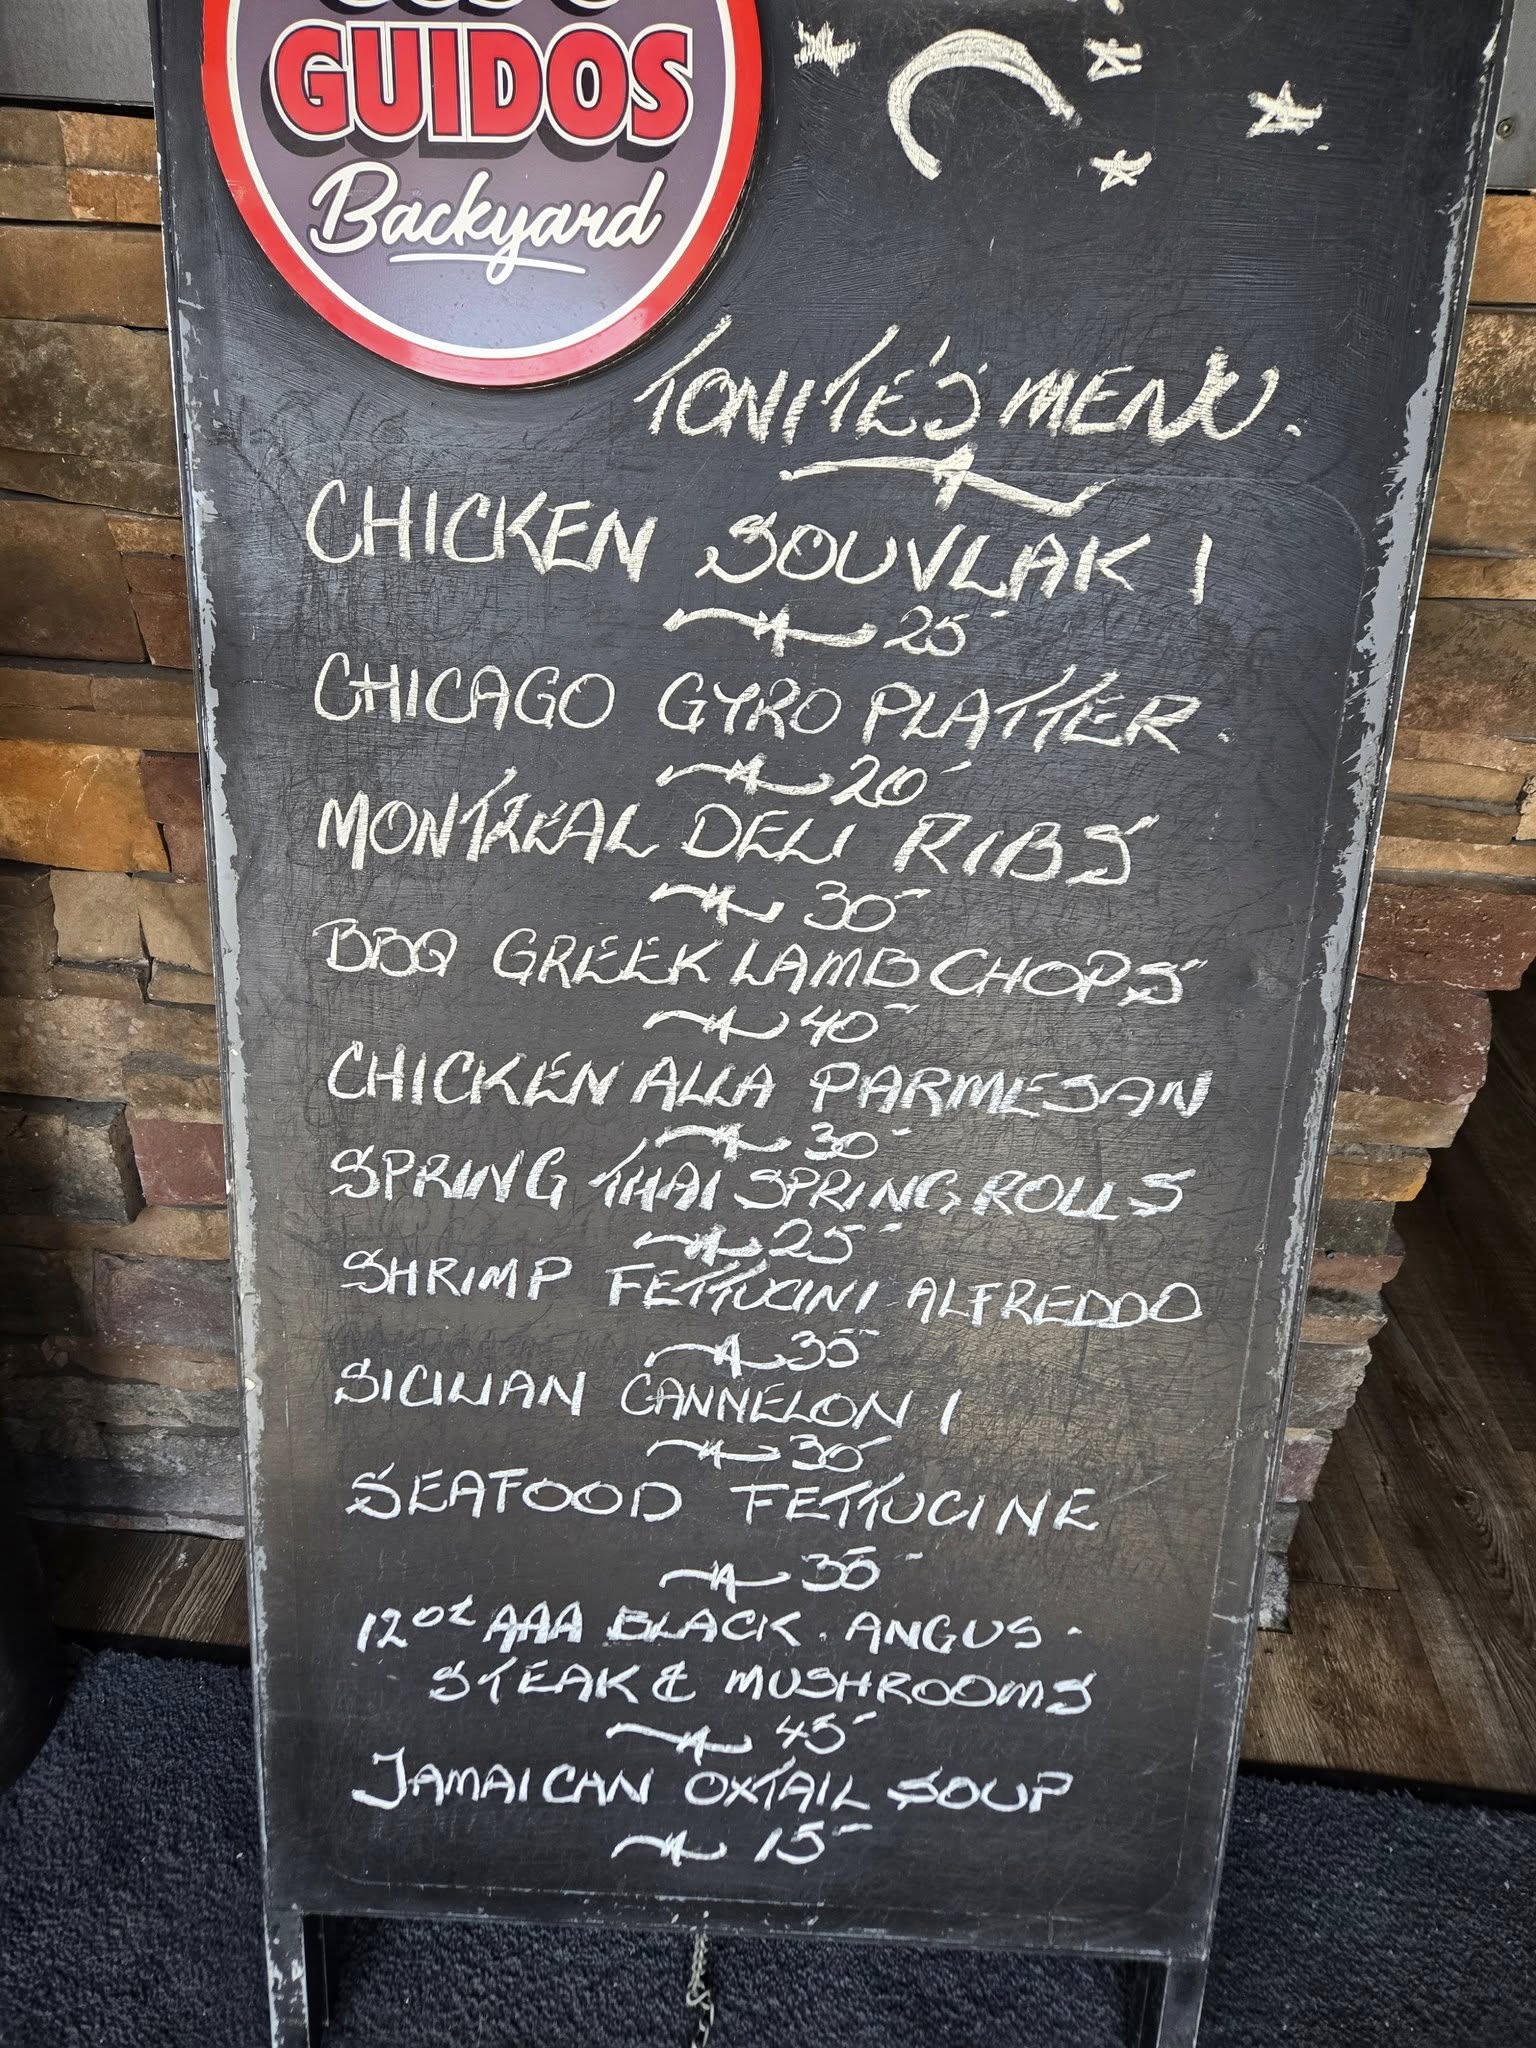 GUIDOS
Backyard
TONITE'S MENU.
CHICKEN SOUVLAKI
25
CHICAGO GYRO PLATTER.
20
MONTREAL DELI RIBS
30
BBQ GREEK LAMB CHOPS
40
CHICKEN ALLA PARMESAN
30
SPRING THAI SPRING ROLLS
25
SHRIMP FETTUCINI ALFREDDO
35
SICILIAN CANNELONI
30
SEAFOOD FETTUCINE
35
12oz AAA BLACK. ANGUS.
STEAK & MUSHROOMS
45
JAMAICAN OXTAIL SOUP
15